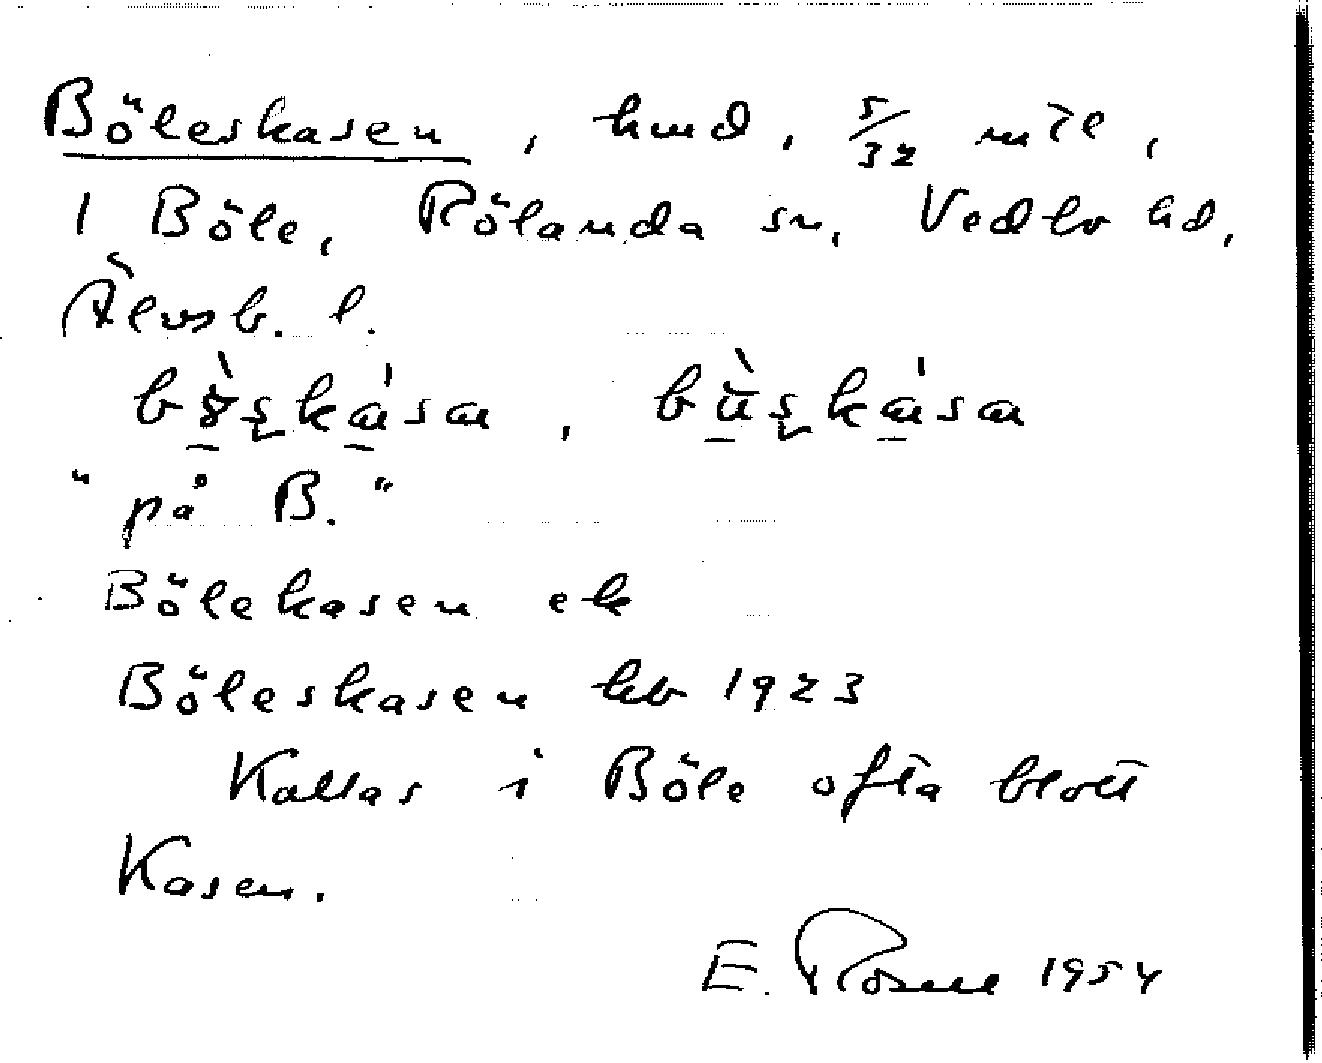 Böleskasen, hmd, 5/32 mtl,
1 Böle, Rölanda sn, Vedbo hd,
Älvsb. l.
"på B."
Bölekasen ek
Böleskasen kb 1923
Kallas i Böle ofta blott
Kasen.
E. 1954